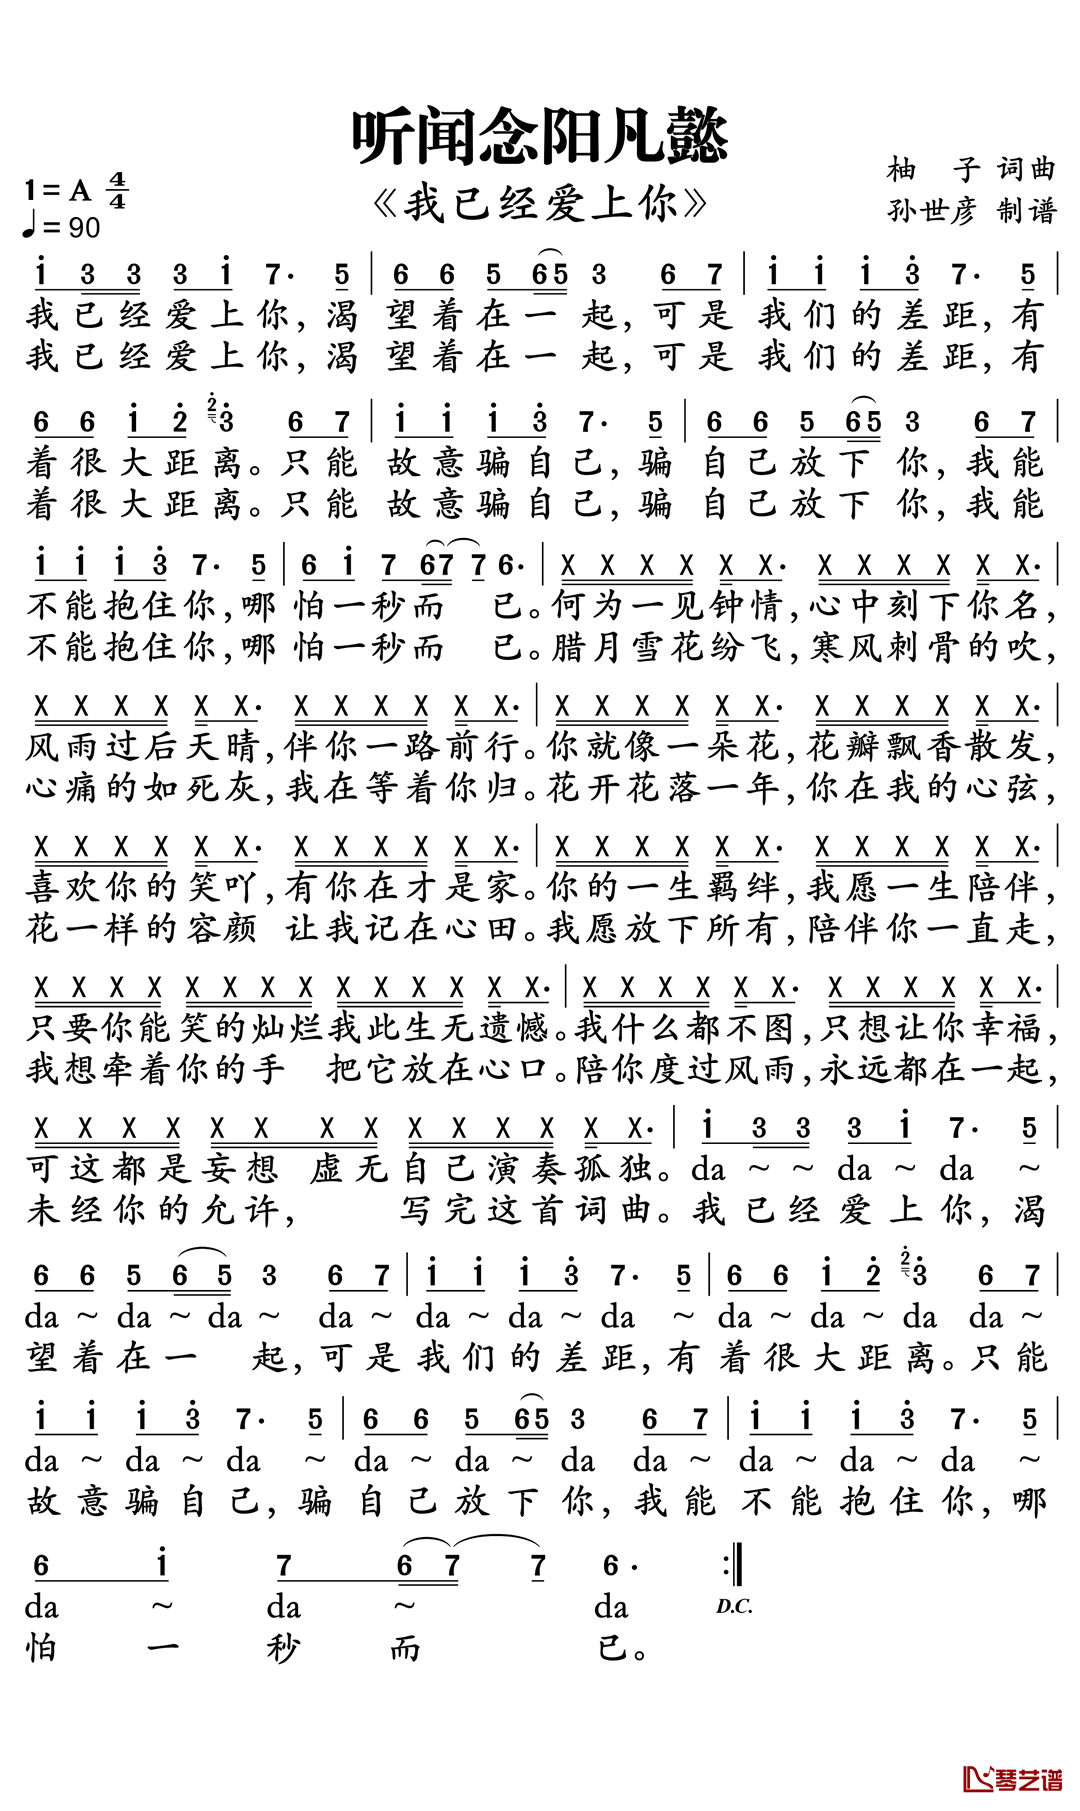 听闻念阳凡懿
《我已经爱上你》
1=A 4/4
♩=90
柚 子 词曲
孙世彦 制谱
i 3 3 3 i 7· 5 | 6 6 5 6 5 3 6 7 | i i i 3̇ 7· 5 |
我已经爱上你，渴 望着在一 起，可是 我们的差距，有
我已经爱上你，渴 望着在一 起，可是 我们的差距，有
6 6 i 2̇ 2̇ 3̇ 6 7 | i i i 3̇ 7· 5 | 6 6 5 6 5 3 6 7 |
着很大距离。只能 故意骗自己，骗 自己放下 你，我能
着很大距离。只能 故意骗自己，骗 自己放下 你，我能
i i i 3̇ 7· 5 | 6 i 7 6 7 7 6· | X X X X X X· X X X X X X· |
不能抱住你，哪 怕一秒而 已。何为一见钟情，心中刻下你名，
不能抱住你，哪 怕一秒而 已。腊月雪花纷飞，寒风刺骨的吹，
X X X X X X· X X X X X X· | X X X X X X· X X X X X X· |
风雨过后天晴，伴你一路前行。你就像一朵花，花瓣飘香散发，
心痛的如死灰，我在等着你归。花开花落一年，你在我的心弦，
X X X X X X· X X X X X X· | X X X X X X· X X X X X X· |
喜欢你的笑吖，有你在才是家。你的一生羁绊，我愿一生陪伴，
花一样的容颜 让我记在心田。我愿放下所有，陪伴你一直走，
X X X X X X X X X X X X X X· | X X X X X X· X X X X X X· |
只要你能笑的灿烂我此生无遗憾。我什么都不图，只想让你幸福，
我想牵着你的手 把它放在心口。陪你度过风雨，永远都在一起，
X X X X X X X X X X X X X X· | i 3 3 3 i 7· 5 |
可这都是妄想 虚无自己演奏孤独。da ~ ~ da ~ da ~
未经你的允许， 写完这首词曲。我已经爱上你，渴
6 6 5 6 5 3 6 7 | i i i 3̇ 7· 5 | 6 6 i 2̇ 2̇ 3̇ 6 7 |
da ~ da ~ da ~ da ~ da ~ da ~ da ~ da ~ da ~ da da ~
望着在一 起，可是我们的差距，有着很大距离。只能
i i i 3̇ 7· 5 | 6 6 5 6 5 3 6 7 | i i i 3̇ 7· 5 |
da ~ da ~ da ~ da ~ da ~ da da ~ da ~ da ~ da ~
故意骗自己，骗自己放下你，我能不能抱住你，哪
6 i 7 6 7 7 6· :‖
da ~ da ~ da D.C.
怕一秒而 已。
琴艺谱